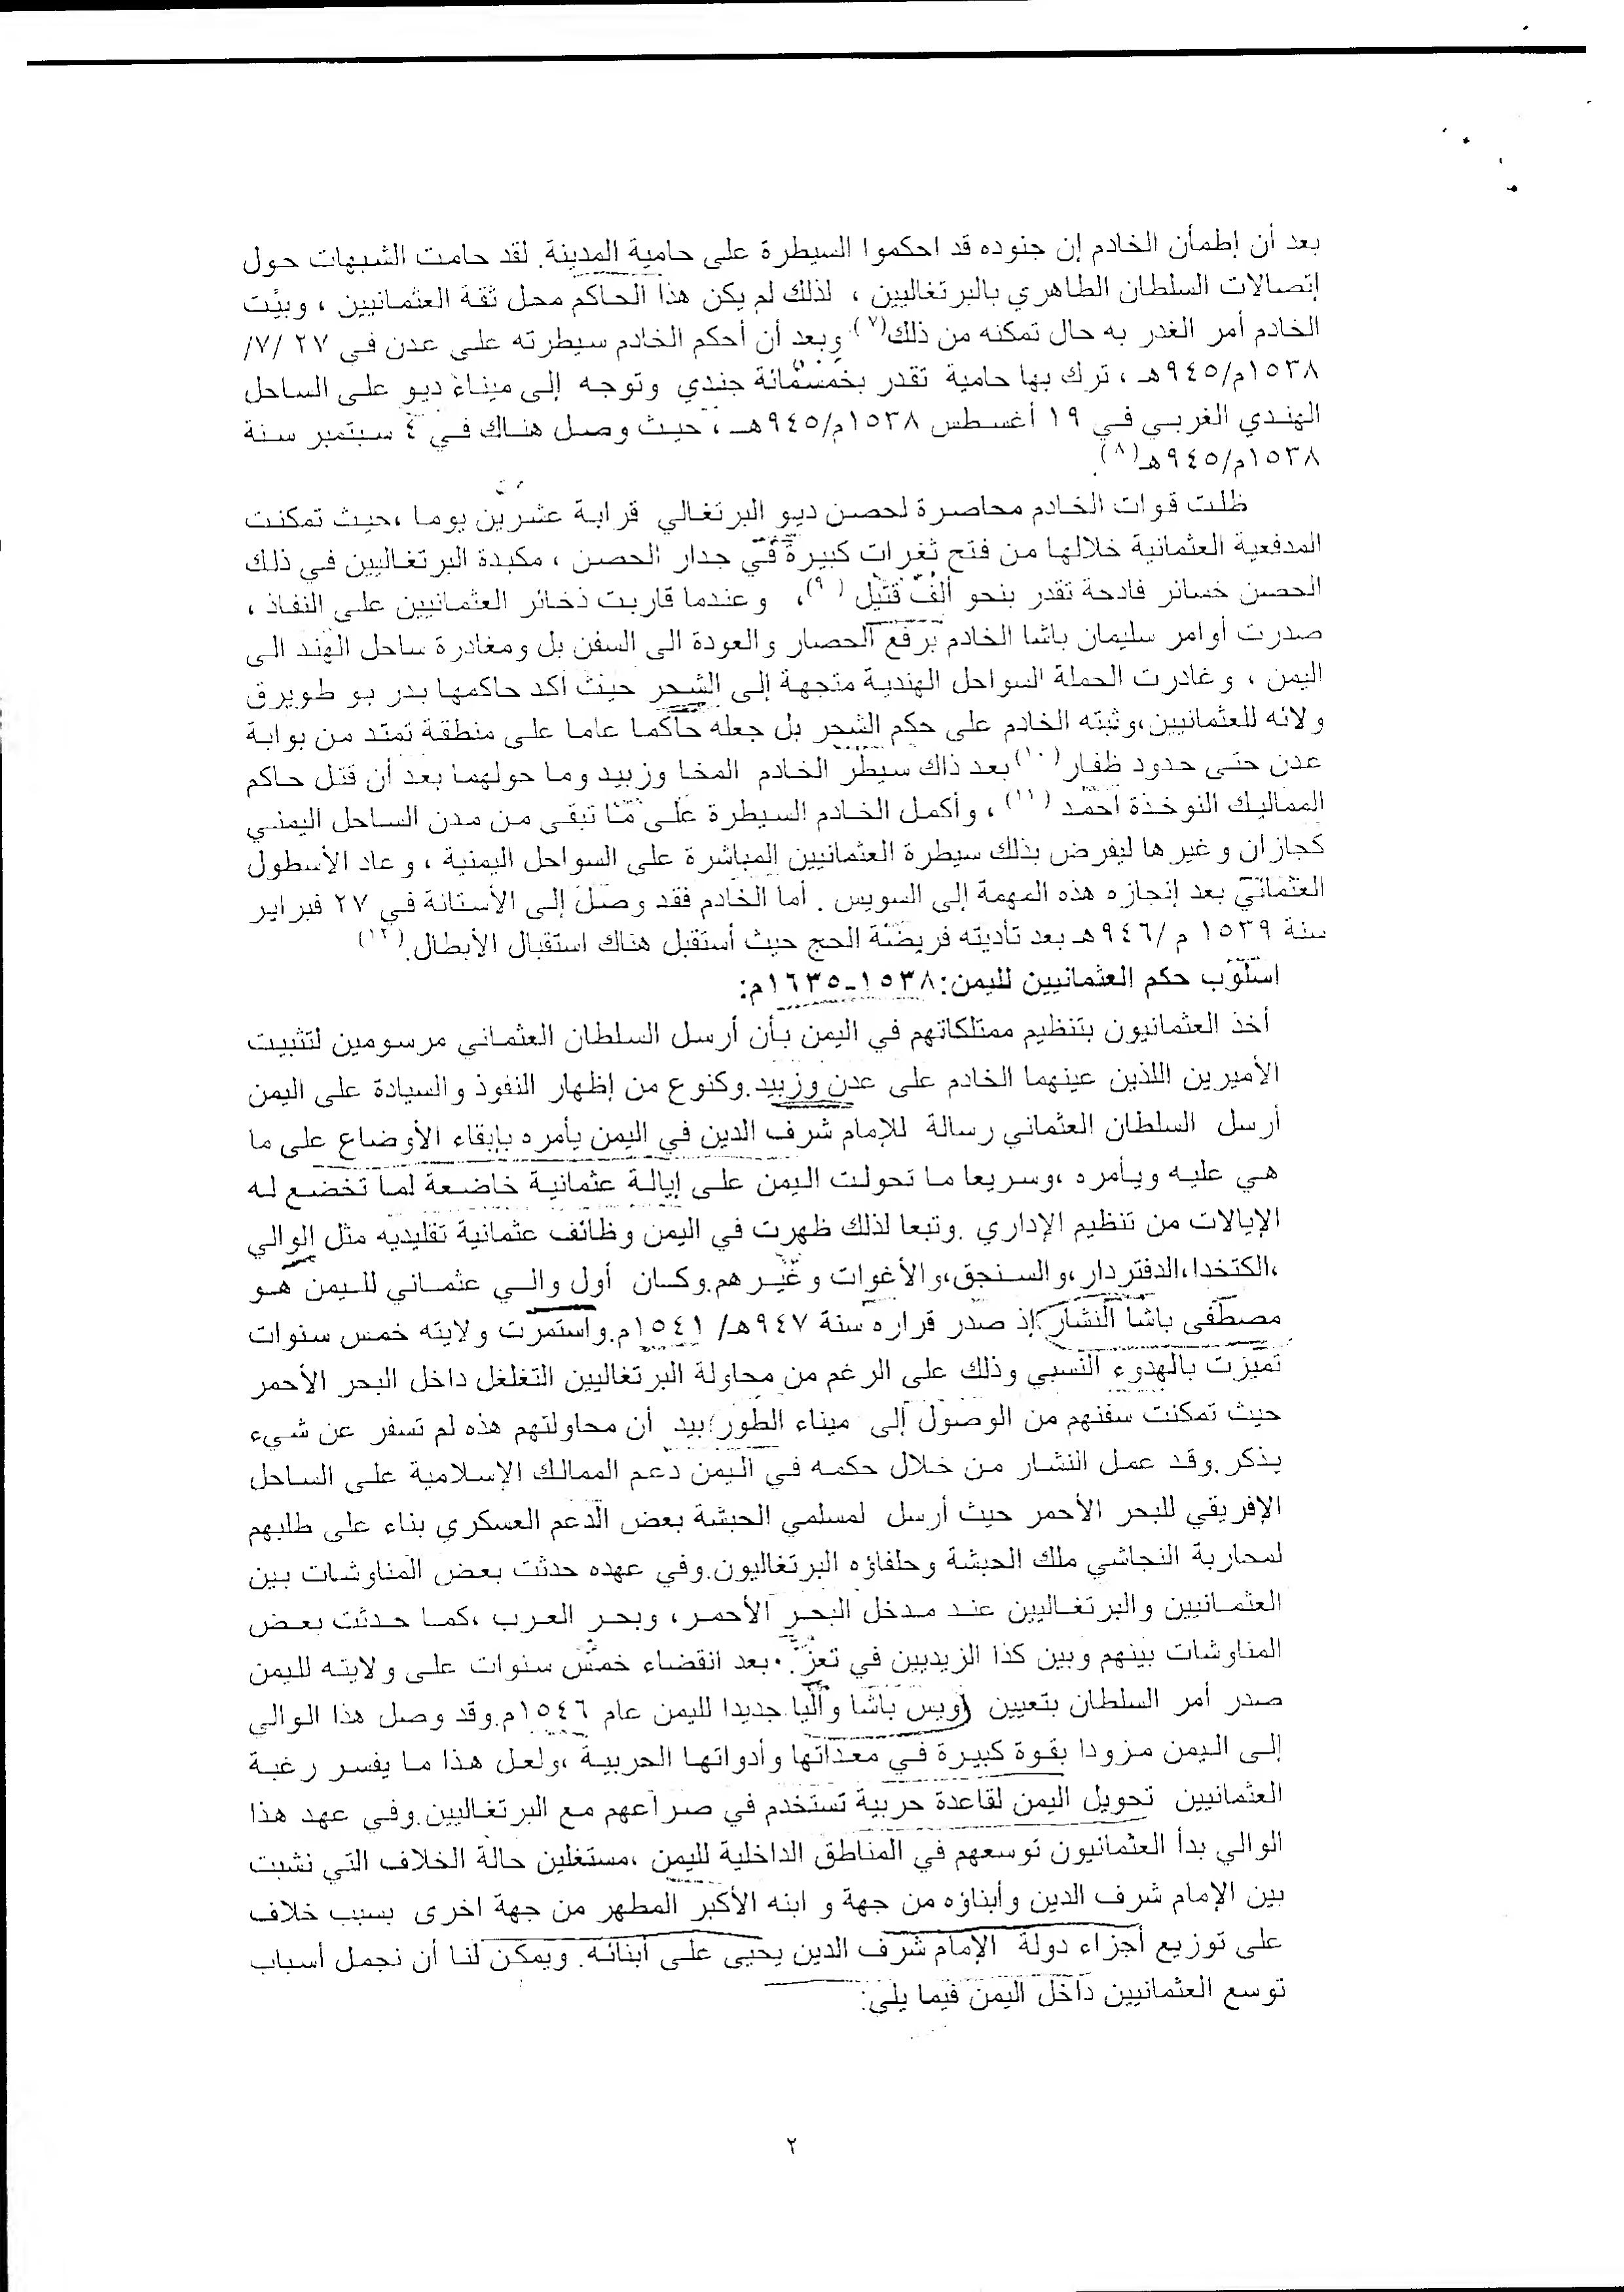 بعد أن إطمأن الخادم إن جنوده قد احكموا السيطرة على حامية المدينة. لقد حامت الشبهات حول
إتصالات السلطان الطاهري بالبرتغاليين ، لذلك لم يكن هذا الحاكم محل ثقة العثمانيين ، وبيّت
الخادم أمر الغدر به حال تمكنه من ذلك(٧) وبعد أن أحكم الخادم سيطرته على عدن في ٢٧ /٧/
١٥٣٨م/٩٤٥هـ ، ترك بها حامية تقدر بخمسمائة جندي وتوجه إلى ميناء ديو على الساحل
الهندي الغربي في ١٩ أغسطس ١٥٣٨م/٩٤٥هـ ، حيث وصل هناك في ٤ سبتمبر سنة
١٥٣٨م/٩٤٥هـ(٨).
ظلت قوات الخادم محاصرة لحصن ديو البرتغالي قرابة عشرين يوما ،حيث تمكنت
المدفعية العثمانية خلالها من فتح ثغرات كبيرة في جدار الحصن ، مكبدة البرتغاليين في ذلك
الحصن خسائر فادحة تقدر بنحو ألف قتيل (٩)، وعندما قاربت ذخائر العثمانيين على النفاذ ،
صدرت أوامر سليمان باشا الخادم برفع الحصار والعودة الى السفن بل ومغادرة ساحل الهند الى
اليمن ، وغادرت الحملة السواحل الهندية متجهة إلى الشحر حيث أكد حاكمها بدر بو طويرق
ولائه للعثمانيين،وثبته الخادم على حكم الشحر بل جعله حاكما عاما على منطقة تمتد من بوابة
عدن حتى حدود ظفار(١٠) بعد ذاك سيطر الخادم المخا وزبيد وما حولهما بعد أن قتل حاكم
المماليك النوخذة أحمد (١١) ، وأكمل الخادم السيطرة على ما تبقى من مدن الساحل اليمني
كجازان وغيرها ليفرض بذلك سيطرة العثمانيين المباشرة على السواحل اليمنية ، وعاد الأسطول
العثماني بعد إنجازه هذه المهمة إلى السويس . أما الخادم فقد وصل إلى الأستانة في ٢٧ فبراير
سنة ١٥٣٩ م /٩٤٦هـ بعد تأديته فريضة الحج حيث أستقبل هناك استقبال الأبطال.(١٢)
اسلوب حكم العثمانيين لليمن:١٥٣٨-١٦٣٥م:
أخذ العثمانيون بتنظيم ممتلكاتهم في اليمن بأن أرسل السلطان العثماني مرسومين لتثبيت
الأميرين اللذين عينهما الخادم على عدن وزبيد.وكنوع من إظهار النفوذ والسيادة على اليمن
أرسل السلطان العثماني رسالة للإمام شرف الدين في اليمن يأمره بإبقاء الأوضاع على ما
هي عليه ويأمره ،وسريعا ما تحولت اليمن على إيالة عثمانية خاضعة لما تخضع له
الإيالات من تنظيم الإداري .وتبعا لذلك ظهرت في اليمن وظائف عثمانية تقليديه مثل الوالي
،الكتخدا،الدفتردار،والسنجق،والأغوات وغيرهم.وكان أول والي عثماني لليمن هو
مصطفى باشا النشار إذ صدر قراره سنة ٩٤٧هـ/ ١٥٤١م.واستمرت ولايته خمس سنوات
تميزت بالهدوء النسبي وذلك على الرغم من محاولة البرتغاليين التغلغل داخل البحر الأحمر
حيث تمكنت سفنهم من الوصول إلى ميناء الطور؛بيد أن محاولتهم هذه لم تسفر عن شيء
يذكر.وقد عمل النشار من خلال حكمه في اليمن دعم الممالك الإسلامية على الساحل
الإفريقي للبحر الأحمر حيث أرسل لمسلمي الحبشة بعض الدعم العسكري بناء على طلبهم
لمحاربة النجاشي ملك الحبشة وحلفاؤه البرتغاليون.وفي عهده حدثت بعض المناوشات بين
العثمانيين والبرتغاليين عند مدخل البحر الأحمر، وبحر العرب ،كما حدثت بعض
المناوشات بينهم وبين كذا الزيديين في تعز. بعد انقضاء خمس سنوات على ولايته لليمن
صدر أمر السلطان بتعيين أويس باشا واليا جديدا لليمن عام ١٥٤٦م.وقد وصل هذا الوالي
إلى اليمن مزودا بقوة كبيرة في معداتها وأدواتها الحربية ،ولعل هذا ما يفسر رغبة
العثمانيين تحويل اليمن لقاعدة حربية تستخدم في صراعهم مع البرتغاليين.وفي عهد هذا
الوالي بدأ العثمانيون توسعهم في المناطق الداخلية لليمن ،مستغلين حالة الخلاف التي نشبت
بين الإمام شرف الدين وأبناؤه من جهة و ابنه الأكبر المطهر من جهة اخرى بسبب خلاف
على توزيع أجزاء دولة الإمام شرف الدين يحيى على أبنائه. ويمكن لنا أن نجمل أسباب
توسع العثمانيين داخل اليمن فيما يلي:
٢